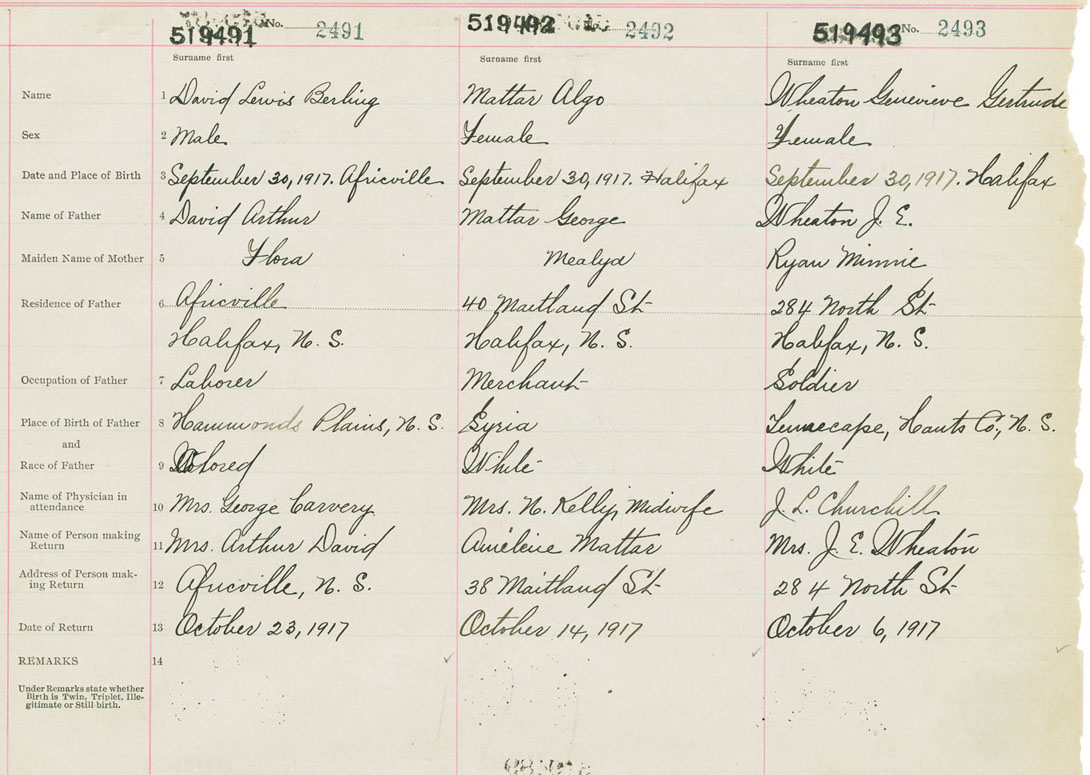 519491 No. 2491 519492 No. 2492 519493 No. 2493
Surname first Surname first Surname first
Name 1 David Lewis Berling Mattar Algo Wheaton Genevieve Gertrude
Sex 2 Male Female Female
Date and Place of Birth 3 September 30, 1917. Africville September 30, 1917. Halifax September 30, 1917. Halifax
Name of Father 4 David Arthur Mattar George Wheaton J. E.
Maiden Name of Mother 5 Flora Mealya Ryan Minnie
Residence of Father 6 Africville 40 Maitland St 284 North St
Halifax, N. S. Halifax, N. S. Halifax, N. S.
Occupation of Father 7 Laborer Merchant Soldier
Place of Birth of Father 8 Hammonds Plains, N. S. Syria Tennecape, Hants Co., N. S.
and
Race of Father 9 Colored White White
Name of Physician in
attendance 10 Mrs. George Carvery Mrs. N. Kelly, Midwife J. L. Churchill
Name of Person making
Return 11 Mrs. Arthur David Amelene Mattar Mrs. J. E. Wheaton
Address of Person mak-
ing Return 12 Africville, N. S. 38 Maitland St 284 North St
Date of Return 13 October 23, 1917 October 14, 1917 October 6, 1917
REMARKS 14
Under Remarks state whether
Birth is Twin, Triplet, Ille-
gitimate or Still-birth.